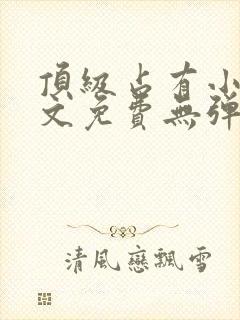 頂級占有小
文免費無彈
清風戀飄雪